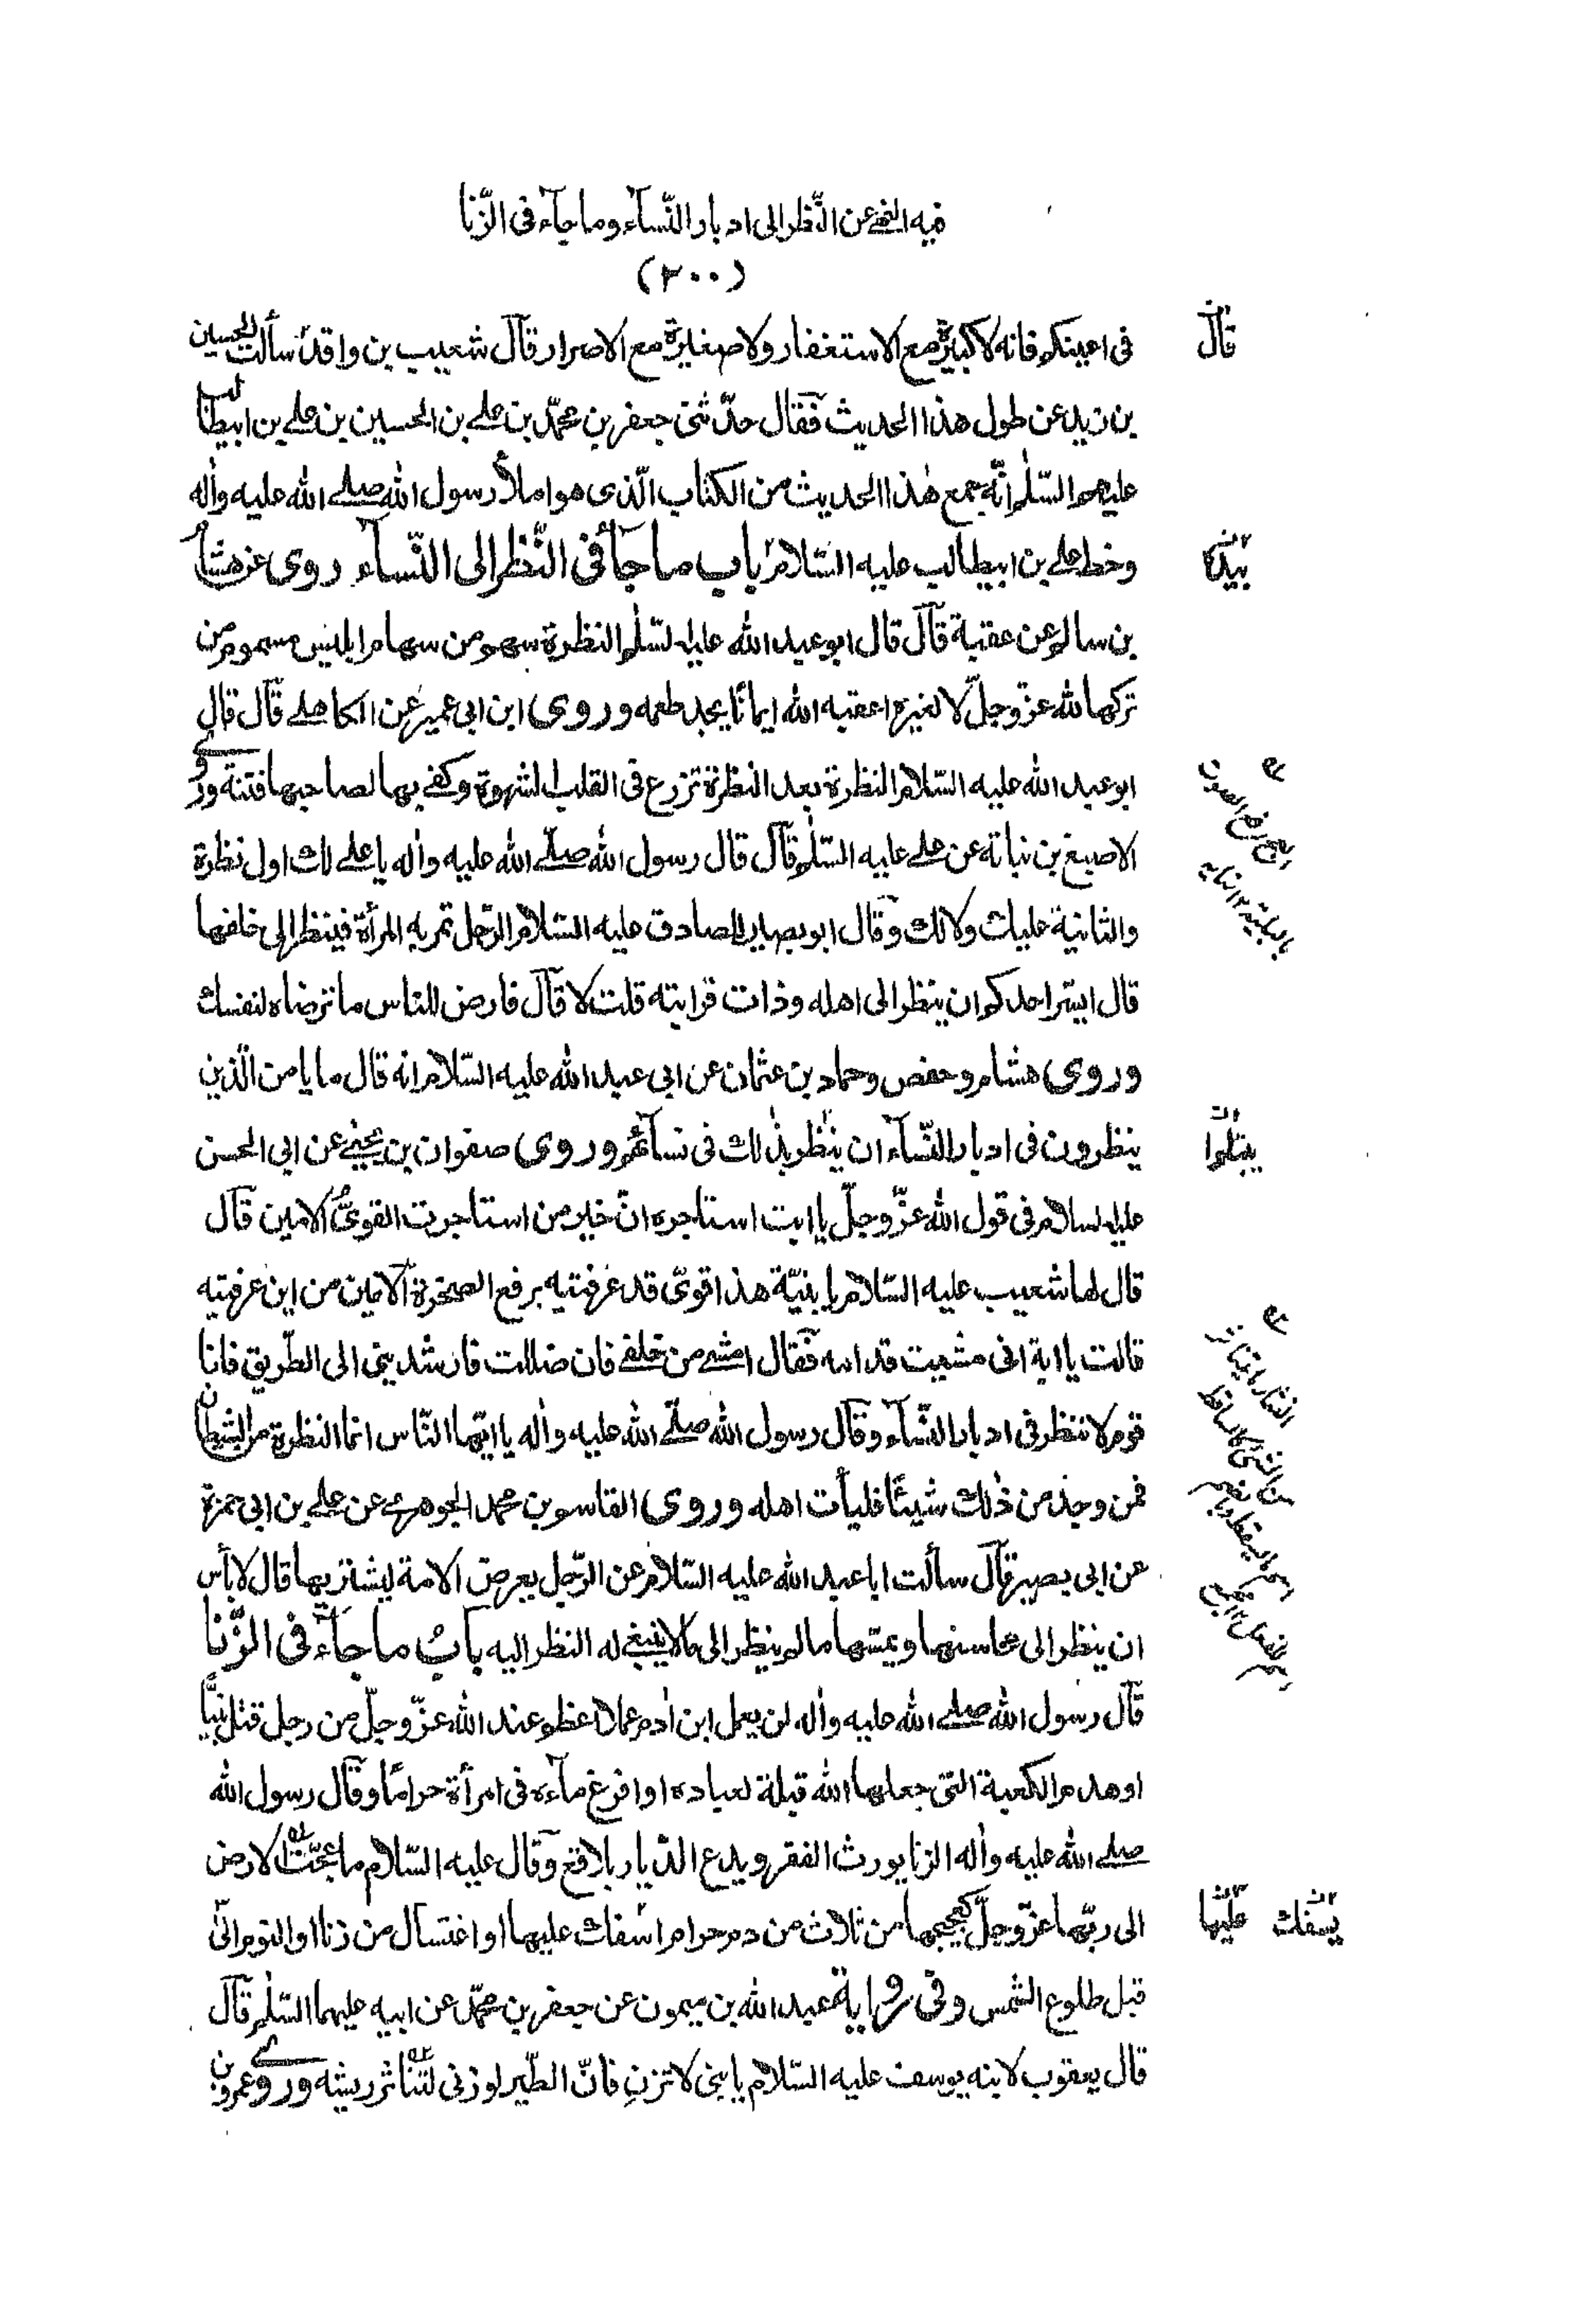 فيه النهى عن النّظر الى ادبار النّسآء وما جآء فى الزّنا
(٢٠٠)
فى اعينكم فانه لا كبيرة مع الاستغفار ولا صغيرة مع الاصرار قال شعيب بن واقد سألت الحسين
قال
بن زيد عن طول هذا الحديث فقال حدّثنى جعفر بن محمّد بن على بن الحسين بن على بن ابيطالب
عليهم السّلٰم انّه جمع هٰذا الحديث من الكتاب الّذى هو املاء رسول الله صلى الله عليه واٰله
وخط على بن ابيطالب عليه السّلام باب ما جآء فى النّظر الى النّسآء روى عن هشام
بيده
بن سالم عن عقبة قال قال ابو عبد الله عليه السّلٰم النظرة سهم من سهام ابليس مسموم من
تركها لله عزّ وجلّ لا لغيره اعقبه الله ايمانًا يجد طعمه وروى ابن ابى عمير عن الكاهلى قال قال
ابو عبد الله عليه السّلام النظرة بعد النظرة تزرع فى القلب الشهوة وكفى بها لصاحبها فتنة وروى
الاصبغ بن نباتة عن على عليه السّلٰم قال قال رسول الله صلّى الله عليه واٰله يا على لك اول نظرة
والثانية عليك ولا لك وقال ابو بصير للصادق عليه السّلام الرّجل تمر به المرأة فينظر الى خلفها
قال ايسّر احدكم ان ينظر الى اهله وذات قرابته قلت لا قال فارض للناس ما ترضاه لنفسك
وروى هشام وحفص وحماد بن عثمان عن ابى عبد الله عليه السّلام انه قال ما يامن الّذين
ينظرون فى ادبار النّسآء ان ينظر بذٰلك فى نسآئهم وروى صفوان بن يحيى عن ابى الحسن
يبتلوا
عليه السلام فى قول الله عزّ وجلّ يا ابت استاجره انّ خير من استاجرت القوىّ الامين قال
قال لها شعيب عليه السّلام يا بنيّة هذا قوىّ قد عرفتيه برفع الصخرة الامين من اين عرفتيه
قالت يا ابة انى مشيت قدامه فقال امشى من خلفى فان ضللت فارشدينى الى الطّريق فانا
قوم لا ننظر فى ادبار النّسآء وقال رسول الله صلّى الله عليه واٰله يا ايّها النّاس انما النظرة من الشيطان
فمن وجد من ذٰلك شيئًا فليأت اهله وروى القاسم بن محمد الجوهرى عن على بن ابى حمزة
عن ابى بصير قال سألت ابا عبد الله عليه السّلام عن الرّجل يعرض الامة ليشتريها قال لا بأس
ان ينظر الى محاسنها ويمسّها ما لم ينظر الى ما لا ينبغى له النظر اليه بابُ ما جآء فى الزّنا
قال رسول الله صلى الله عليه واٰله لن يعمل ابن اٰدم عملا اعظم عند الله عزّ وجلّ من رجل قتل نبيًّا
او هدم الكعبة التى جعلها الله قبلة لعباده او افرغ ماءه فى امرأة حرامًا وقال رسول الله
صلى الله عليه واٰله الزنا يورث الفقر ويدع الدّيار بلاقع وقال عليه السّلام ما عجّت الارض
الى ربّها عزّ وجلّ كعجيجها من ثلاث من دم حرام اسفك عليها او اغتسال من زنا او النوم الّى
يسفك عليها
قبل طلوع الشّمس وفى رواية عبد الله بن ميمون عن جعفر بن محمّد عن ابيه عليهما السّلٰم قال
قال يعقوب لابنه يوسف عليه السّلام يا بنى لا تزن فانّ الطّير لو زنى لتناثر ريشه وروى عمرو بن